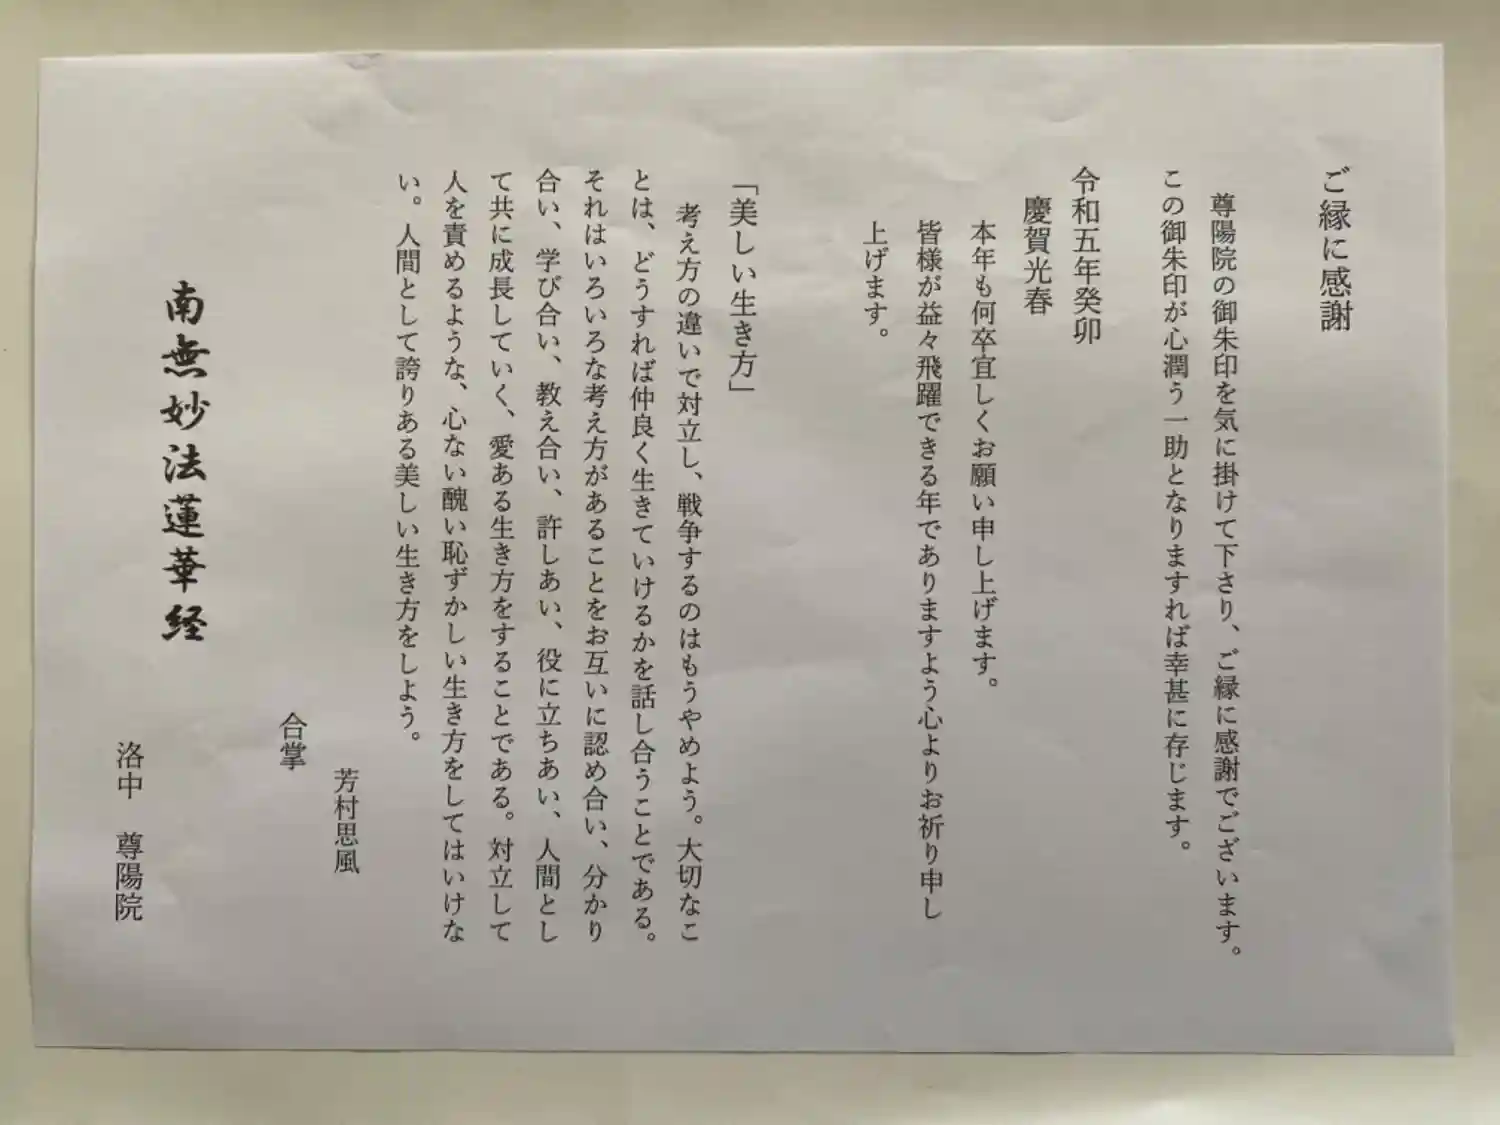 ご縁に感謝
尊陽院の御朱印を気に掛けて下さり、ご縁に感謝でございます。
この御朱印が心潤う一助となりますれば幸甚に存じます。
令和五年癸卯
慶賀光春
本年も何卒宜しくお願い申し上げます。
皆様が益々飛躍できる年でありますよう心よりお祈り申し
上げます。
「美しい生き方」
考え方の違いで対立し、戦争するのはもうやめよう。大切なこ
とは、どうすれば仲良く生きていけるかを話し合うことである。
それはいろいろな考え方があることをお互いに認め合い、分かり
合い、学び合い、教え合い、許しあい、役に立ちあい、人間とし
て共に成長していく、愛ある生き方をすることである。対立して
人を責めるような、心ない醜い恥ずかしい生き方をしてはいけな
い。人間として誇りある美しい生き方をしよう。
芳村思風
合掌
南無妙法蓮華経
洛中　尊陽院